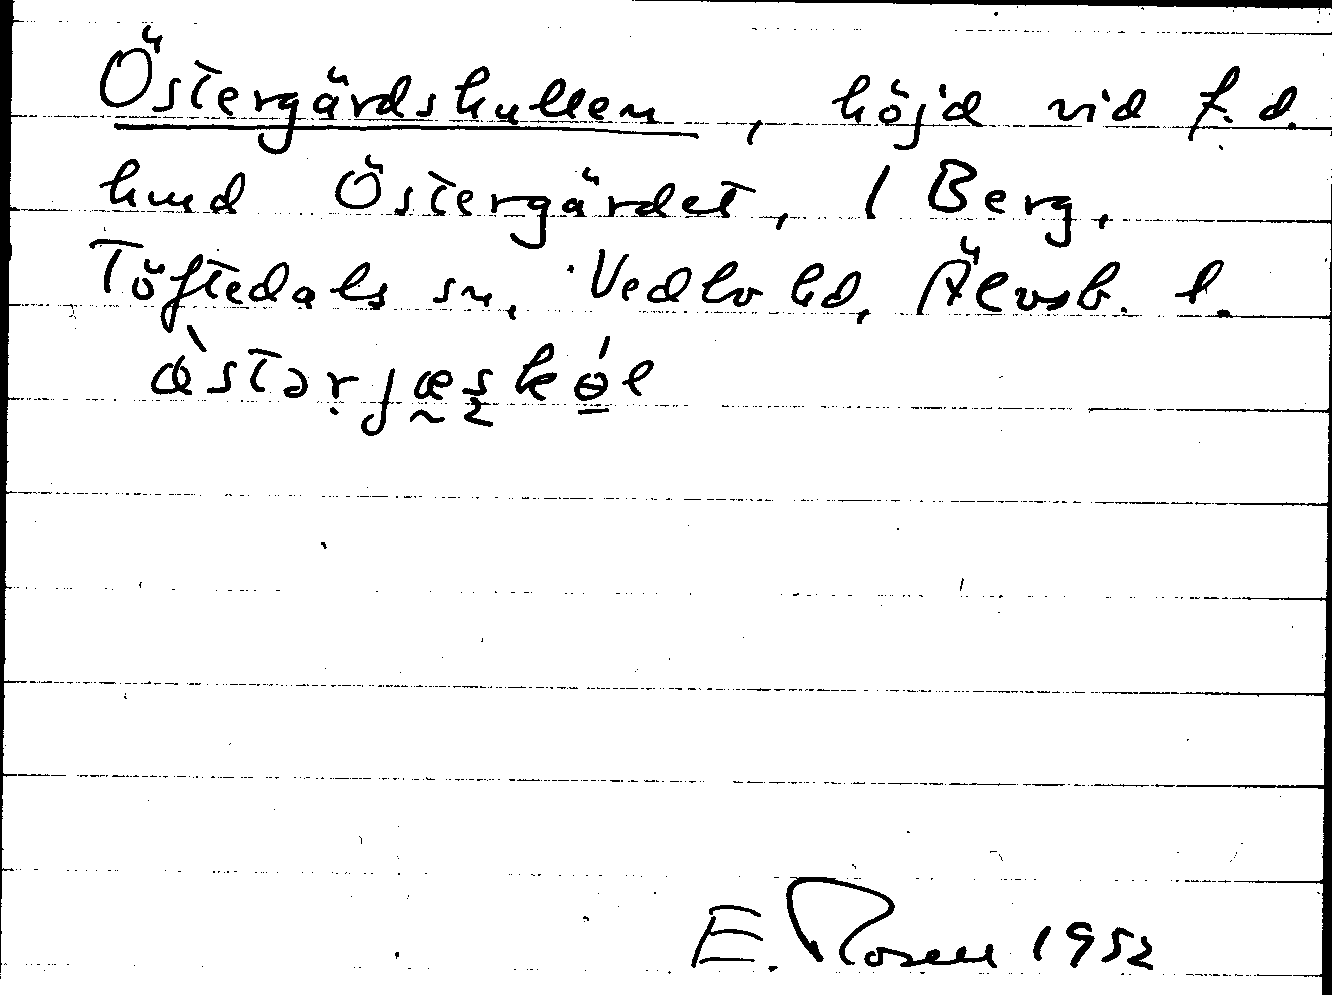 Östergärdskullen, höjd vid f.d.
hmd Östergärdet, 1 Berg,
Töftedals sn, Vedbo hd, Älvsb. l.
östərjæskɵ́l
E. Rosen 1952